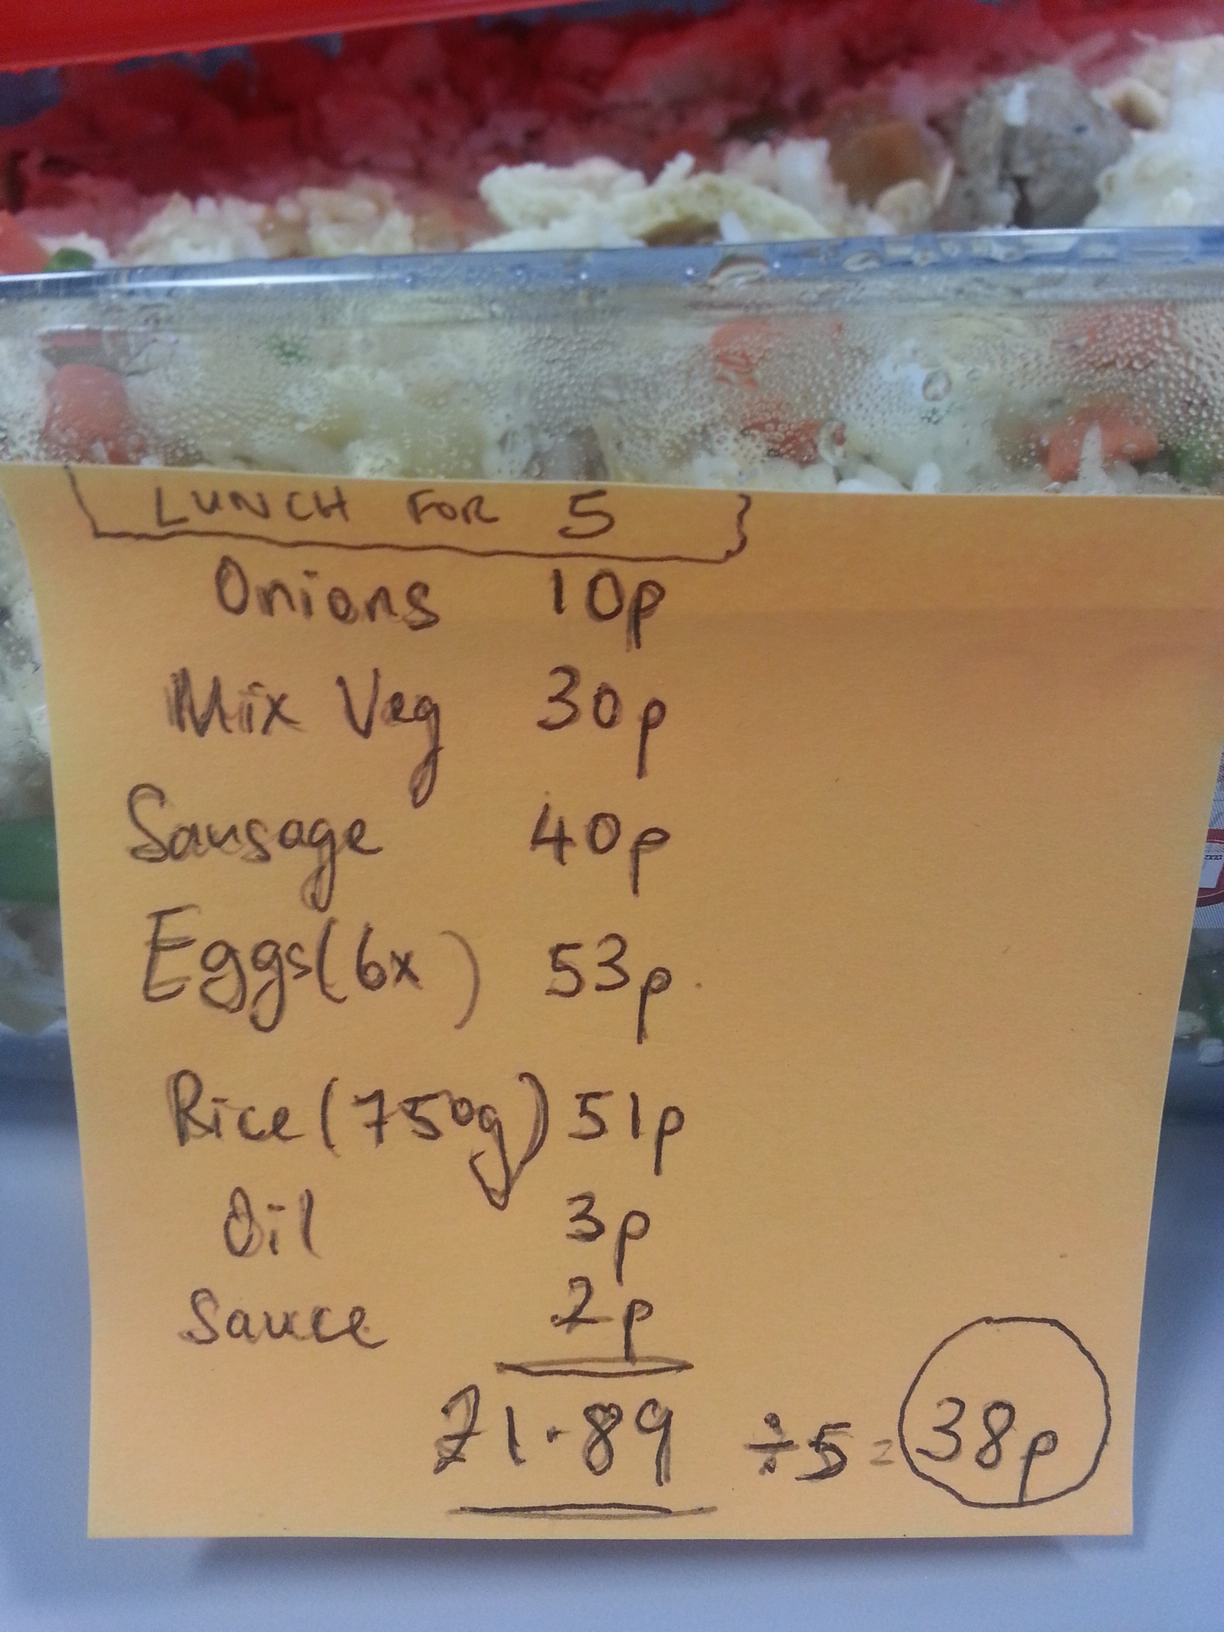 LUNCH FOR 5
Onions 10p
Mix Veg 30p
Sausage 40p
Eggs(6x) 53p.
Rice(750g) 51p
Oil 3p
Sauce 2p
£1.89 ÷5= 38p